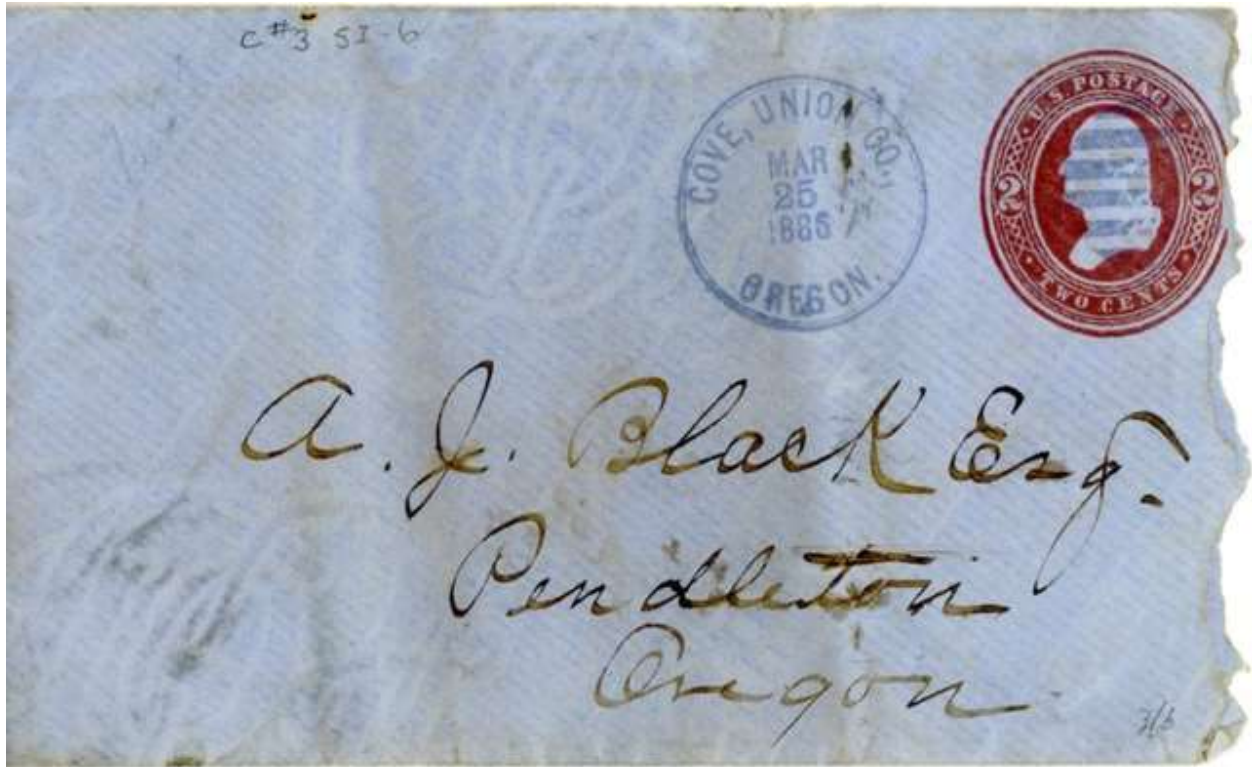 C #3 S1-6
COVE, UNION CO.,
MAR
25
1886
OREGON.
U.S. POSTAGE
2 2
TWO CENTS
A. J. Black Esq.
Pendleton
Oregon